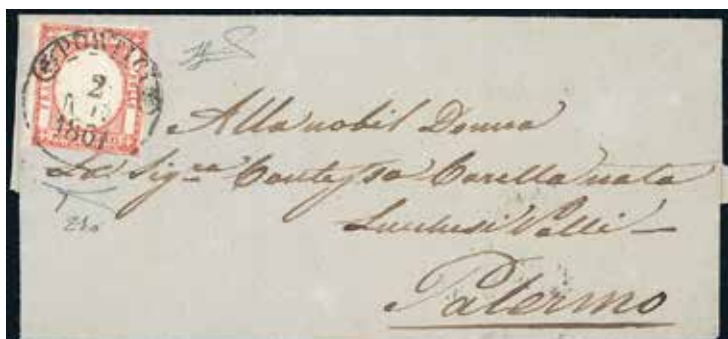 PORTICI
2
1861
Alla nobil Donna
La Sig.ra Contessa Carella nata
Lucchesi Palli
Palermo